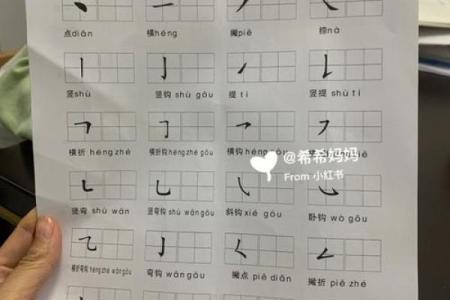 点diǎn 横héng 撇piě 捺nà
竖shù 竖钩 shù gōu 提 tí 竖提 shù tí
横折 héng zhé 横折钩héng zhé gōu 横钩héng gōu
竖弯 shù wān 竖弯钩 shù wān gōu 斜钩 xié gōu 卧钩 wò gōu
横折弯钩 héng zhé wān gōu 弯钩 wān gōu 撇点 piě diǎn 撇折 piě zhé
@希希妈妈
From 小红书